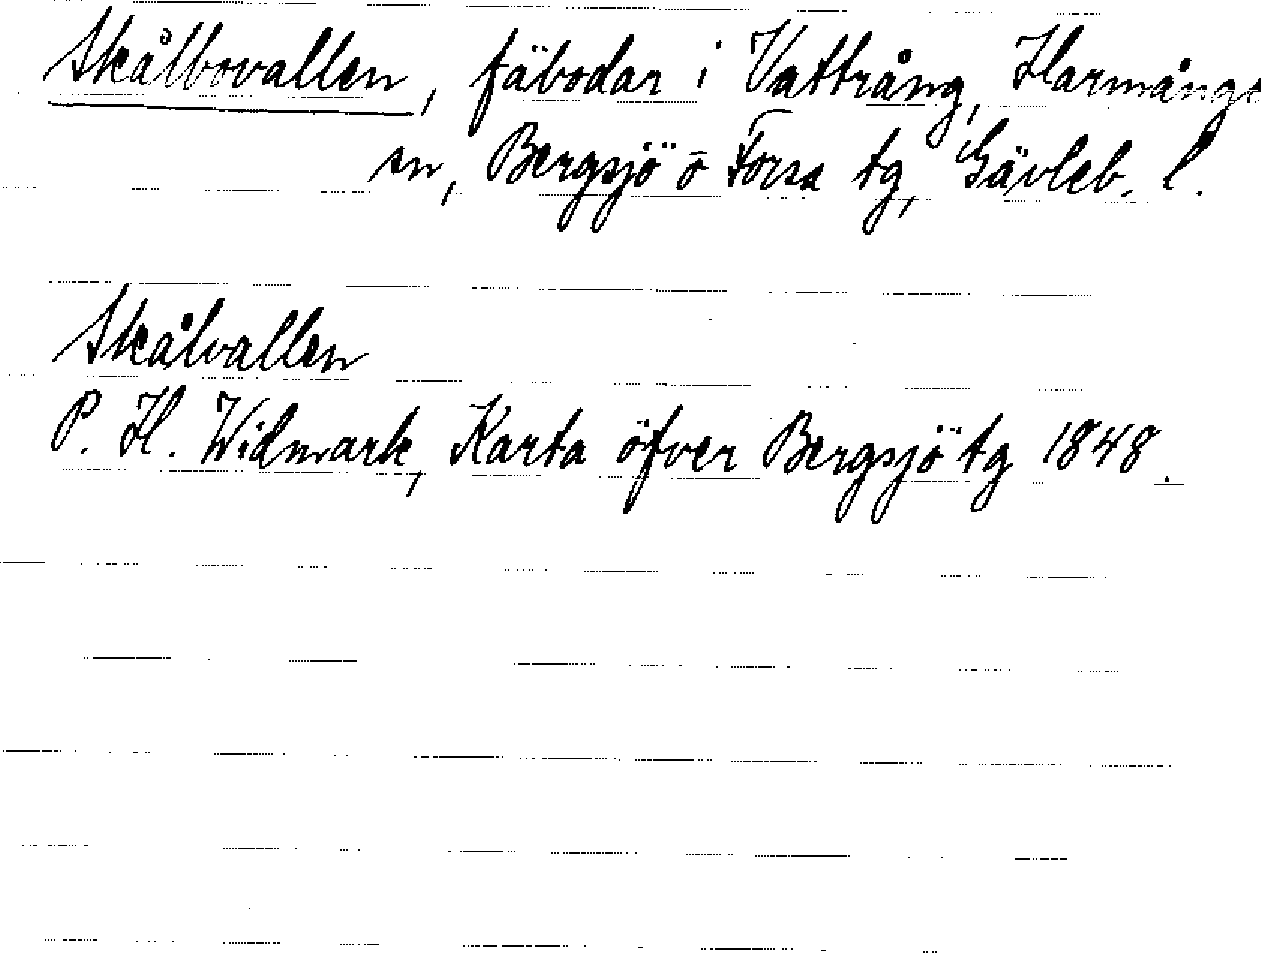 Skålbovallen, fäbodar i Vattrång, Harmånge
sn, Bergsjö o Forsa tg, Gävleb. l.
Skålvallen
P. H. Widmark, Karta öfver Bergsjö tg 1848.